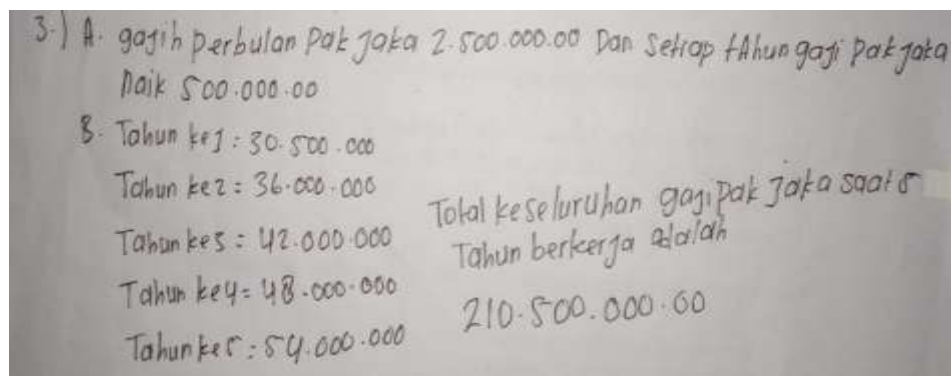 3.) A. gagih perbulan Pak jaka 2.500.000.00 Dan Setiap tAhun gaji pak jaka
Naik 500.000.00
B. Tahun ke1 : 30.500.000
Tahun ke2 : 36.000.000
Tahun ke3 : 42.000.000
Tahun ke4 = 48.000.000
Tahun ke5 : 54.000.000
Total keseluruhan gaji pak Jaka saat 5
Tahun berkerja adalah
210.500.000.00